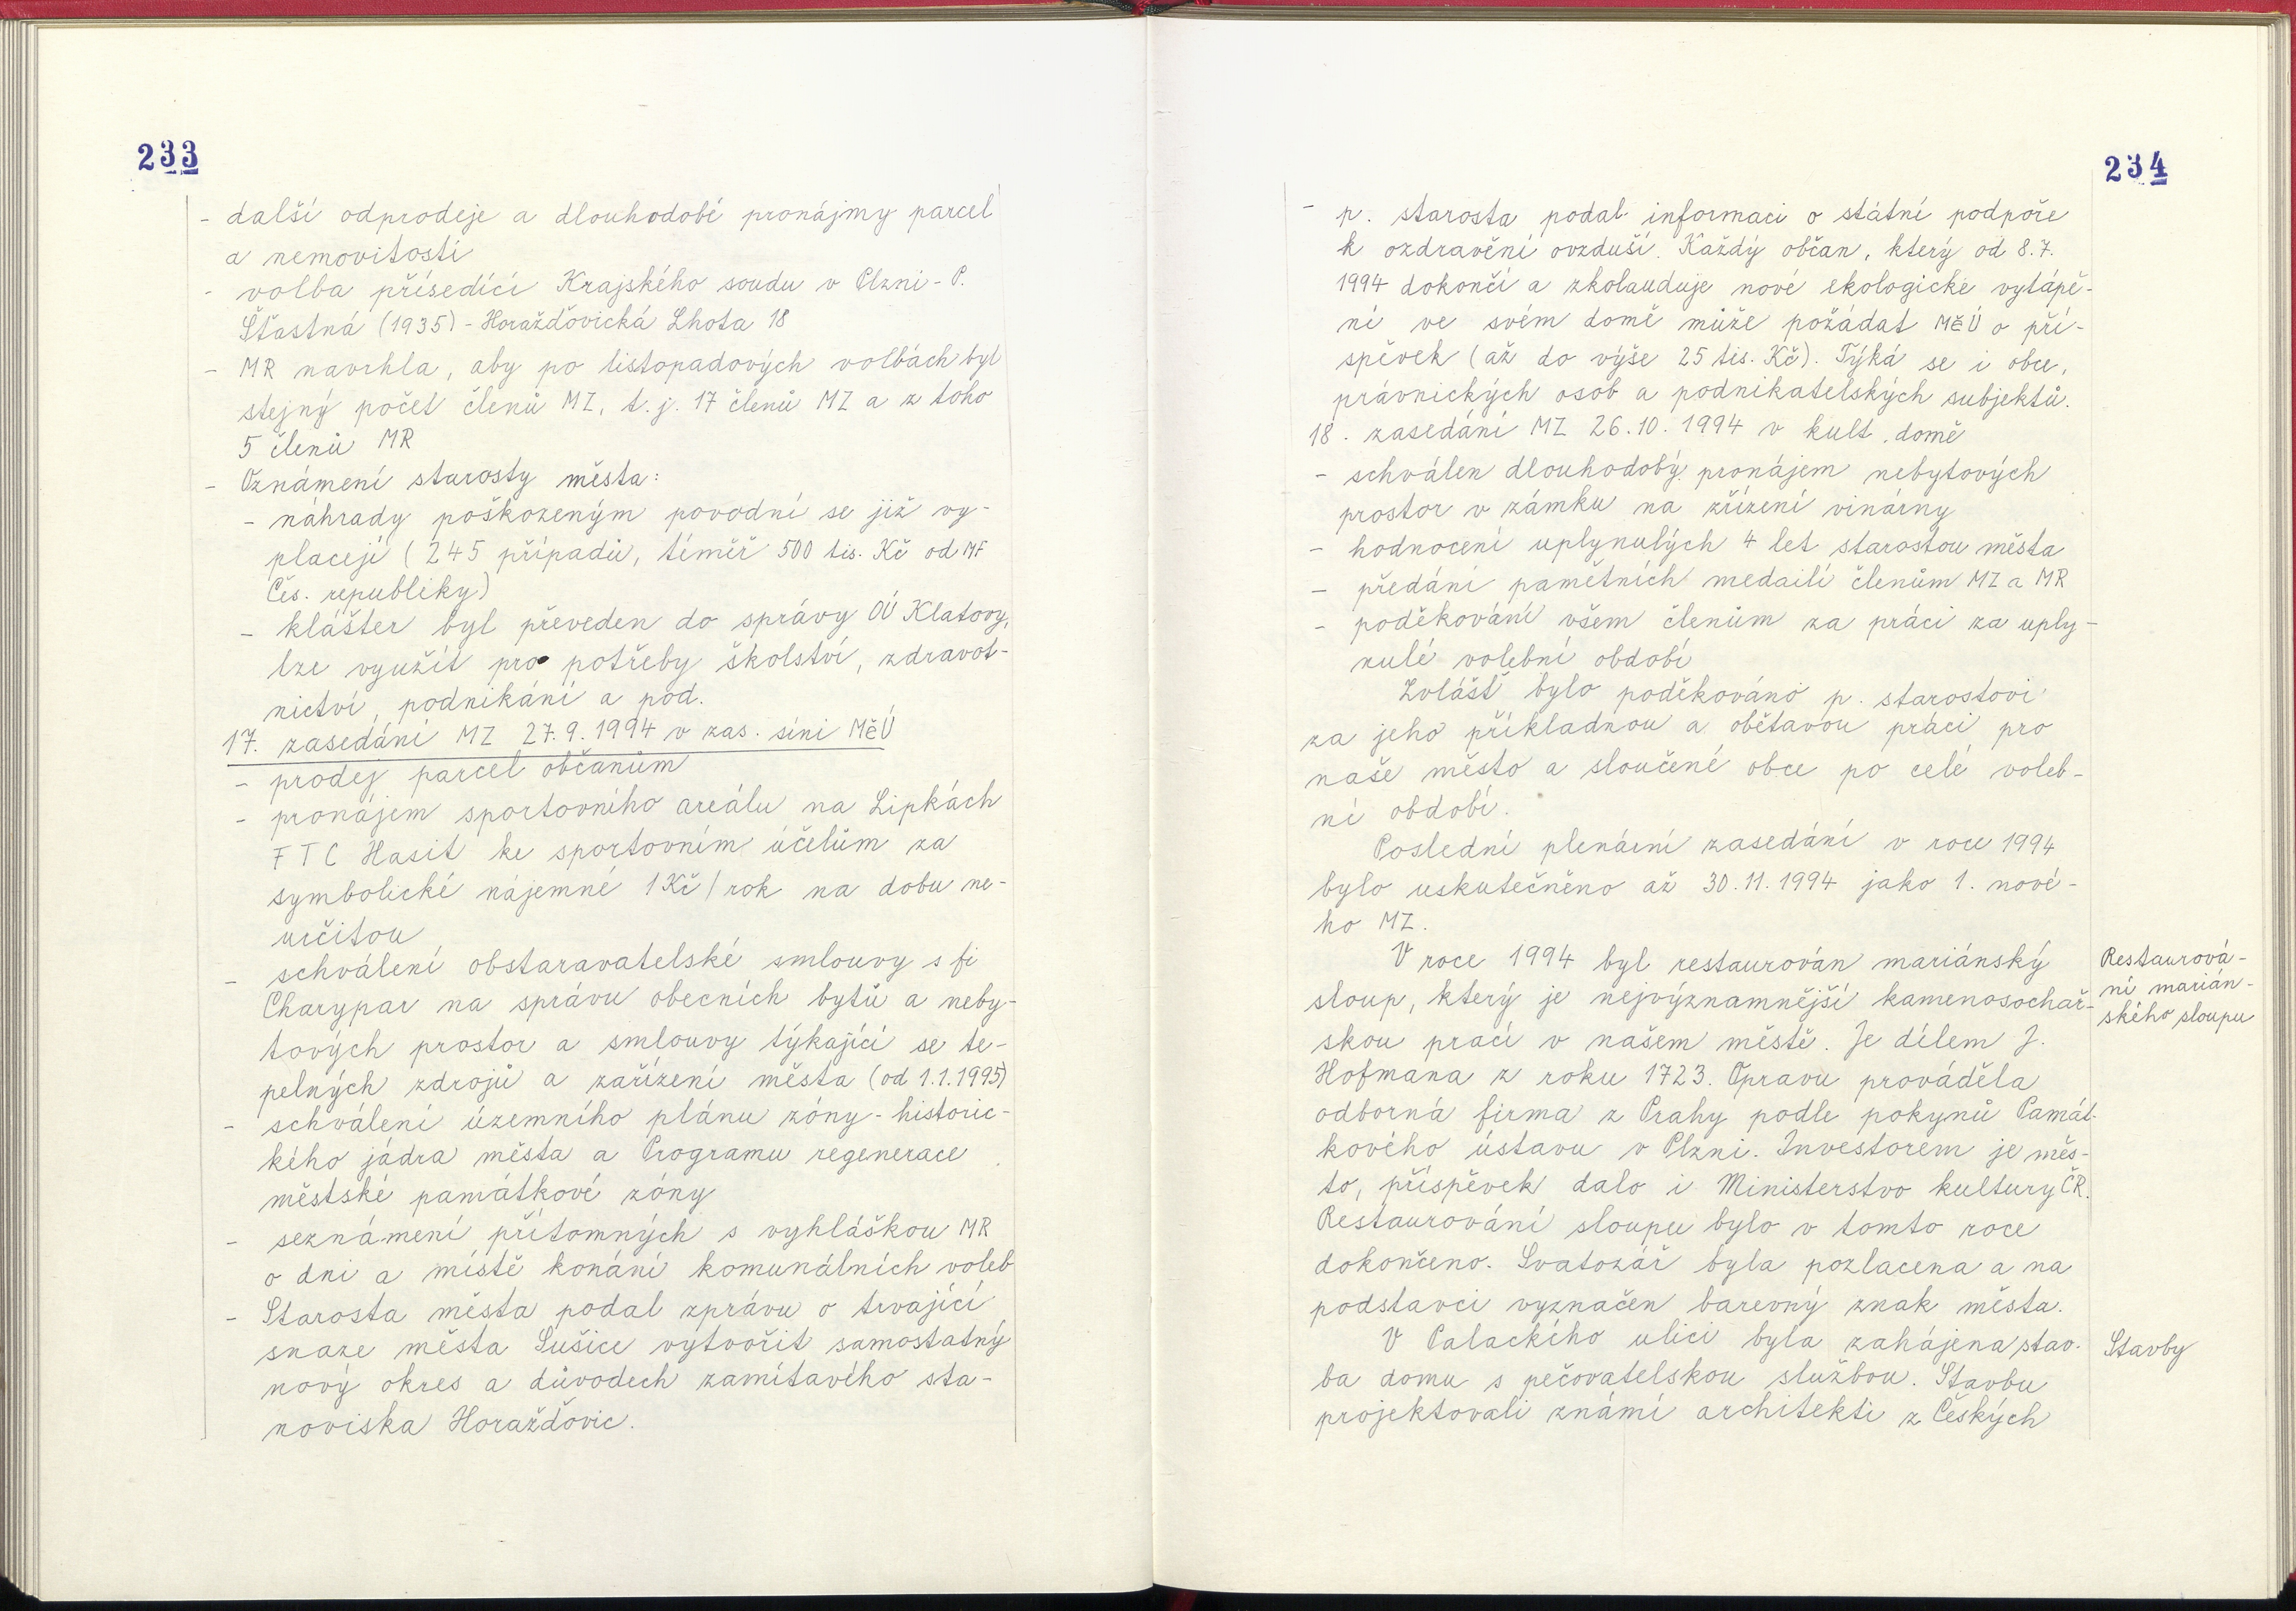 233
- další odprodeje a dlouhodobé pronájmy parcel
a nemovitostí
- volba přísedící Krajského soudu v Plzni - P.
Šťastná (1935) - Horažďovická Lhota 18
- MR navrhla, aby po listopadových volbách byl
stejný počet členů MZ, t. j. 17 členů MZ a z toho
5 členů MR
- Oznámení starosty města:
- náhrady poškozeným povodní se již vy-
placejí (245 případů, téměř 500 tis. Kč od MF
Čes. republiky)
- klášter byl převeden do správy OÚ Klatovy,
lze využít pro potřeby školství, zdravot-
nictví, podnikání a pod.
17. zasedání MZ 27. 9. 1994 v zas. síni MěÚ
- prodej parcel občanům
- pronájem sportovního areálu na Lipkách
FTC Hasit ke sportovním účelům za
symbolické nájemné 1 Kč / rok na dobu ne-
určitou
- schválení obstaravatelské smlouvy s fi
Charypar na správu obecních bytů a neby-
tových prostor a smlouvy týkající se te-
pelných zdrojů a zařízení města (od 1.1.1995)
- schválení územního plánu zóny - historic-
kého jádra města a Programu regenerace
městské památkové zóny
- seznámení přítomných s vyhláškou MR
o dni a místě konání komunálních voleb
- Starosta města podal zprávu o trvající
snaze města Sušice vytvořit samostatný
nový okres a důvodech zamítavého sta-
noviska Horažďovic.
234
- p. starosta podal informaci o státní podpoře
k ozdravění ovzduší. Každý občan, který od 8. 7.
1994 dokončí a zkolauduje nové ekologické vytápě-
ní ve svém domě může požádat MěÚ o pří-
spěvek (až do výše 25 tis. Kč). Týká se i obce,
právnických osob a podnikatelských subjektů.
18. zasedání MZ 26. 10. 1994 v kult. domě
- schválen dlouhodobý pronájem nebytových
prostor v zámku na zřízení vinárny
- hodnocení uplynulých 4 let starostou města
- předání pamětních medailí členům MZ a MR
- poděkování všem členům za práci za uply-
nulé volební období
Zvlášť bylo poděkováno p. starostovi
za jeho příkladnou a obětavou práci pro
naše město a sloučené obce po celé voleb-
ní období.
Poslední plenární zasedání v roce 1994
bylo uskutečněno až 30. 11. 1994 jako 1. nové-
ho MZ.
V roce 1994 byl restaurován mariánský
sloup, který je nejvýznamnější kamenosochař-
skou prací v našem městě. Je dílem J.
Hofmana z roku 1723. Opravu prováděla
odborná firma z Prahy podle pokynů Památ-
kového ústavu v Plzni. Investorem je měs-
to, příspěvek dalo i Ministerstvo kultury ČR.
Restaurování sloupu bylo v tomto roce
dokončeno. Svatozář byla pozlacena a na
podstavci vyznačen barevný znak města.
V Palackého ulici byla zahájena stav-
ba domu s pečovatelskou službou. Stavbu
projektovali známí architekti z Českých
Restaurová-
ní marián-
ského sloupu
Stavby